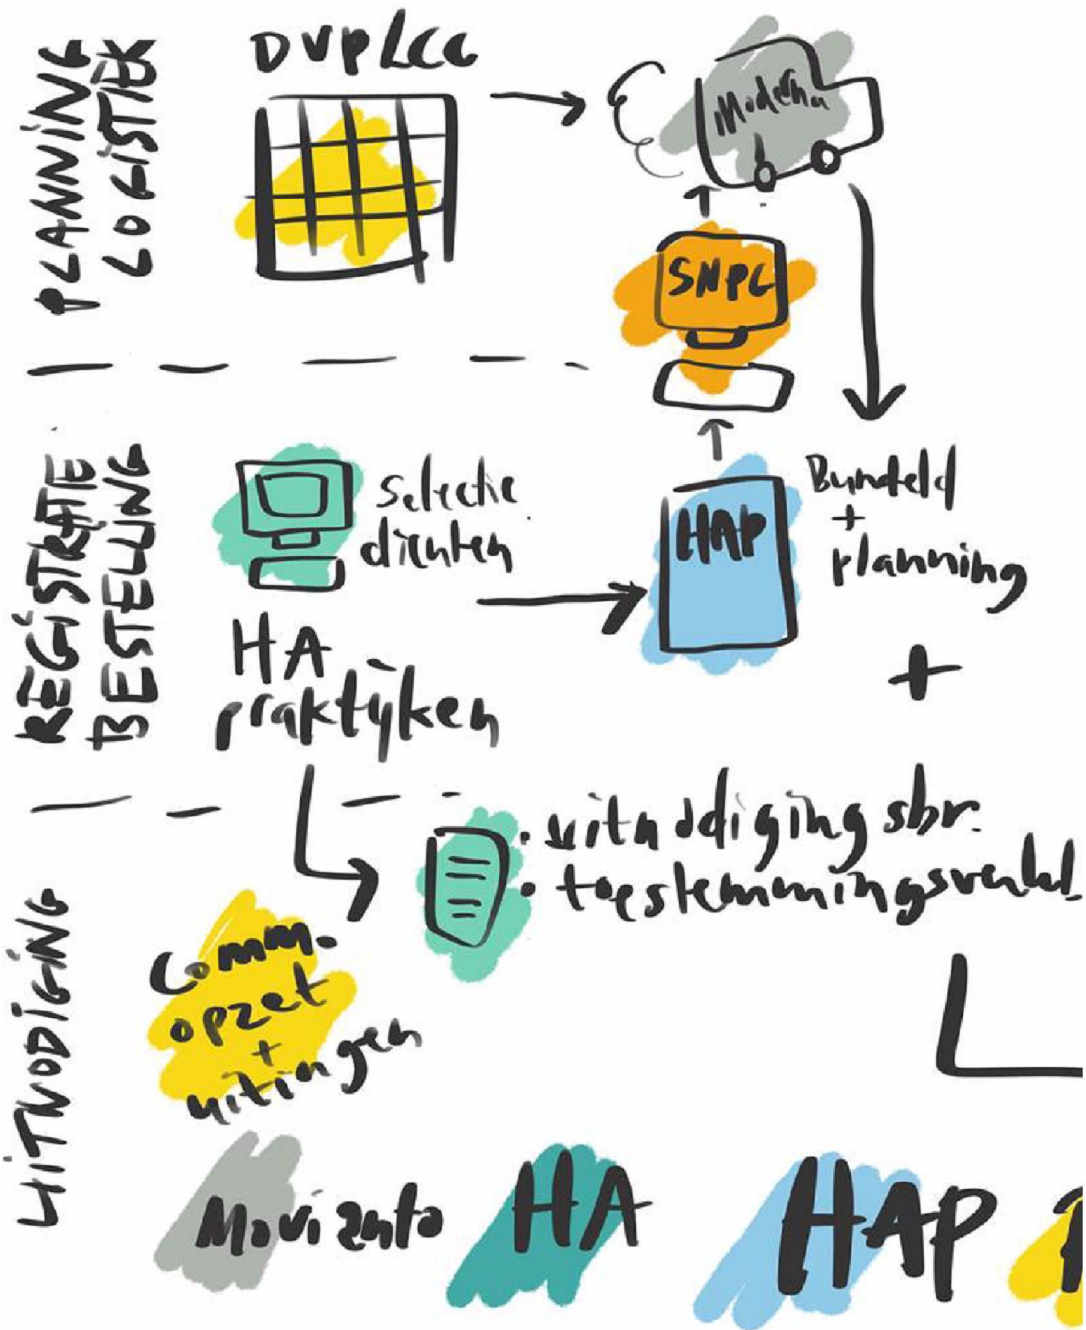 PLANNING
LOGISTIEK
Moderna
SNPG
REGISTRATIE
BESTELLING
selectie
HAP
Bundeld
+
planning
HA
praktijken
+
UITNODIGING
uitnodigingsbr.
Comm.
opzet
+
uitingen
Movianto
HA
HAP